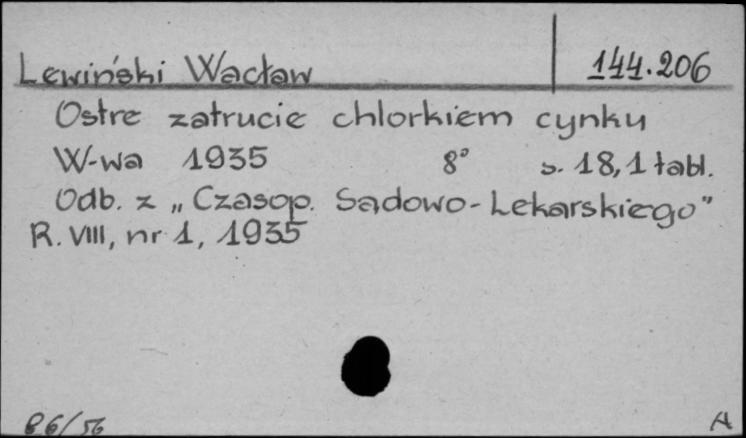 Lewiński Wacław 144.206
Ostre zatrucie chlorkiem cynku
W-wa 1935 8° s. 18, 1 tabl.
Odb. z „Czasop. Sądowo-Lekarskiego"
R. VIII, nr 1, 1935
86/56 A